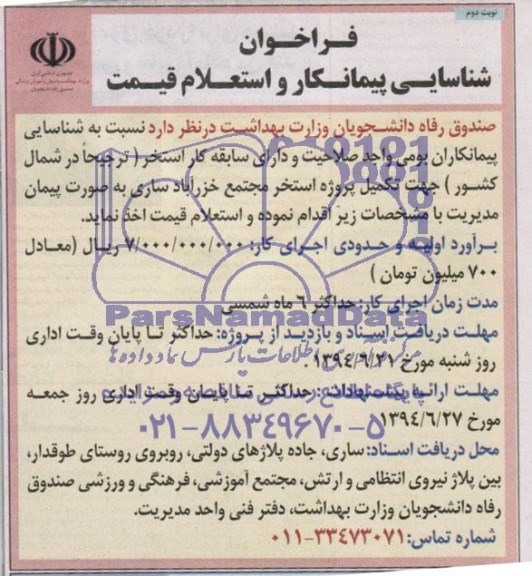 نوبت دوم
فراخوان
شناسایی پیمانکار و استعلام قیمت
جمهوری اسلامی ایران
صندوق رفاه دانشجویان
صندوق رفاه دانشجویان وزارت بهداشت درنظر دارد نسبت به شناسایی
پیمانکاران بومی واجد صلاحیت و دارای سابقه کار استخر ( ترجیحاً در شمال
کشور ) جهت تکمیل پروژه استخر مجتمع خزرآباد ساری به صورت پیمان
مدیریت با مشخصات زیر اقدام نموده و استعلام قیمت اخذ نماید.
برآورد اولیه و حدودی اجرای کار: ۷/۰۰۰/۰۰۰/۰۰۰ ریال (معادل
۷۰۰ میلیون تومان )
مدت زمان اجرای کار: حداکثر ۶ ماه شمسی
ParsNamadData
مهلت دریافت اسناد و بازدید از پروژه: حداکثر تا پایان وقت اداری
روز شنبه مورخ ۱۳۹٤/٦/۲۱
مهلت ارائه پیشنهادات: حداکثر تا پایان وقت اداری روز جمعه
مورخ ۱۳۹٤/٦/۲۷
۰۲۱-۸۸۳۴۹۶۷۰-۵
محل دریافت اسناد: ساری، جاده پلاژهای دولتی، روبروی روستای طوقدار،
بین پلاژ نیروی انتظامی و ارتش، مجتمع آموزشی، فرهنگی و ورزشی صندوق
رفاه دانشجویان وزارت بهداشت، دفتر فنی واحد مدیریت.
شماره تماس: ۰۱۱-۳۳٤۷۳۰۷۱